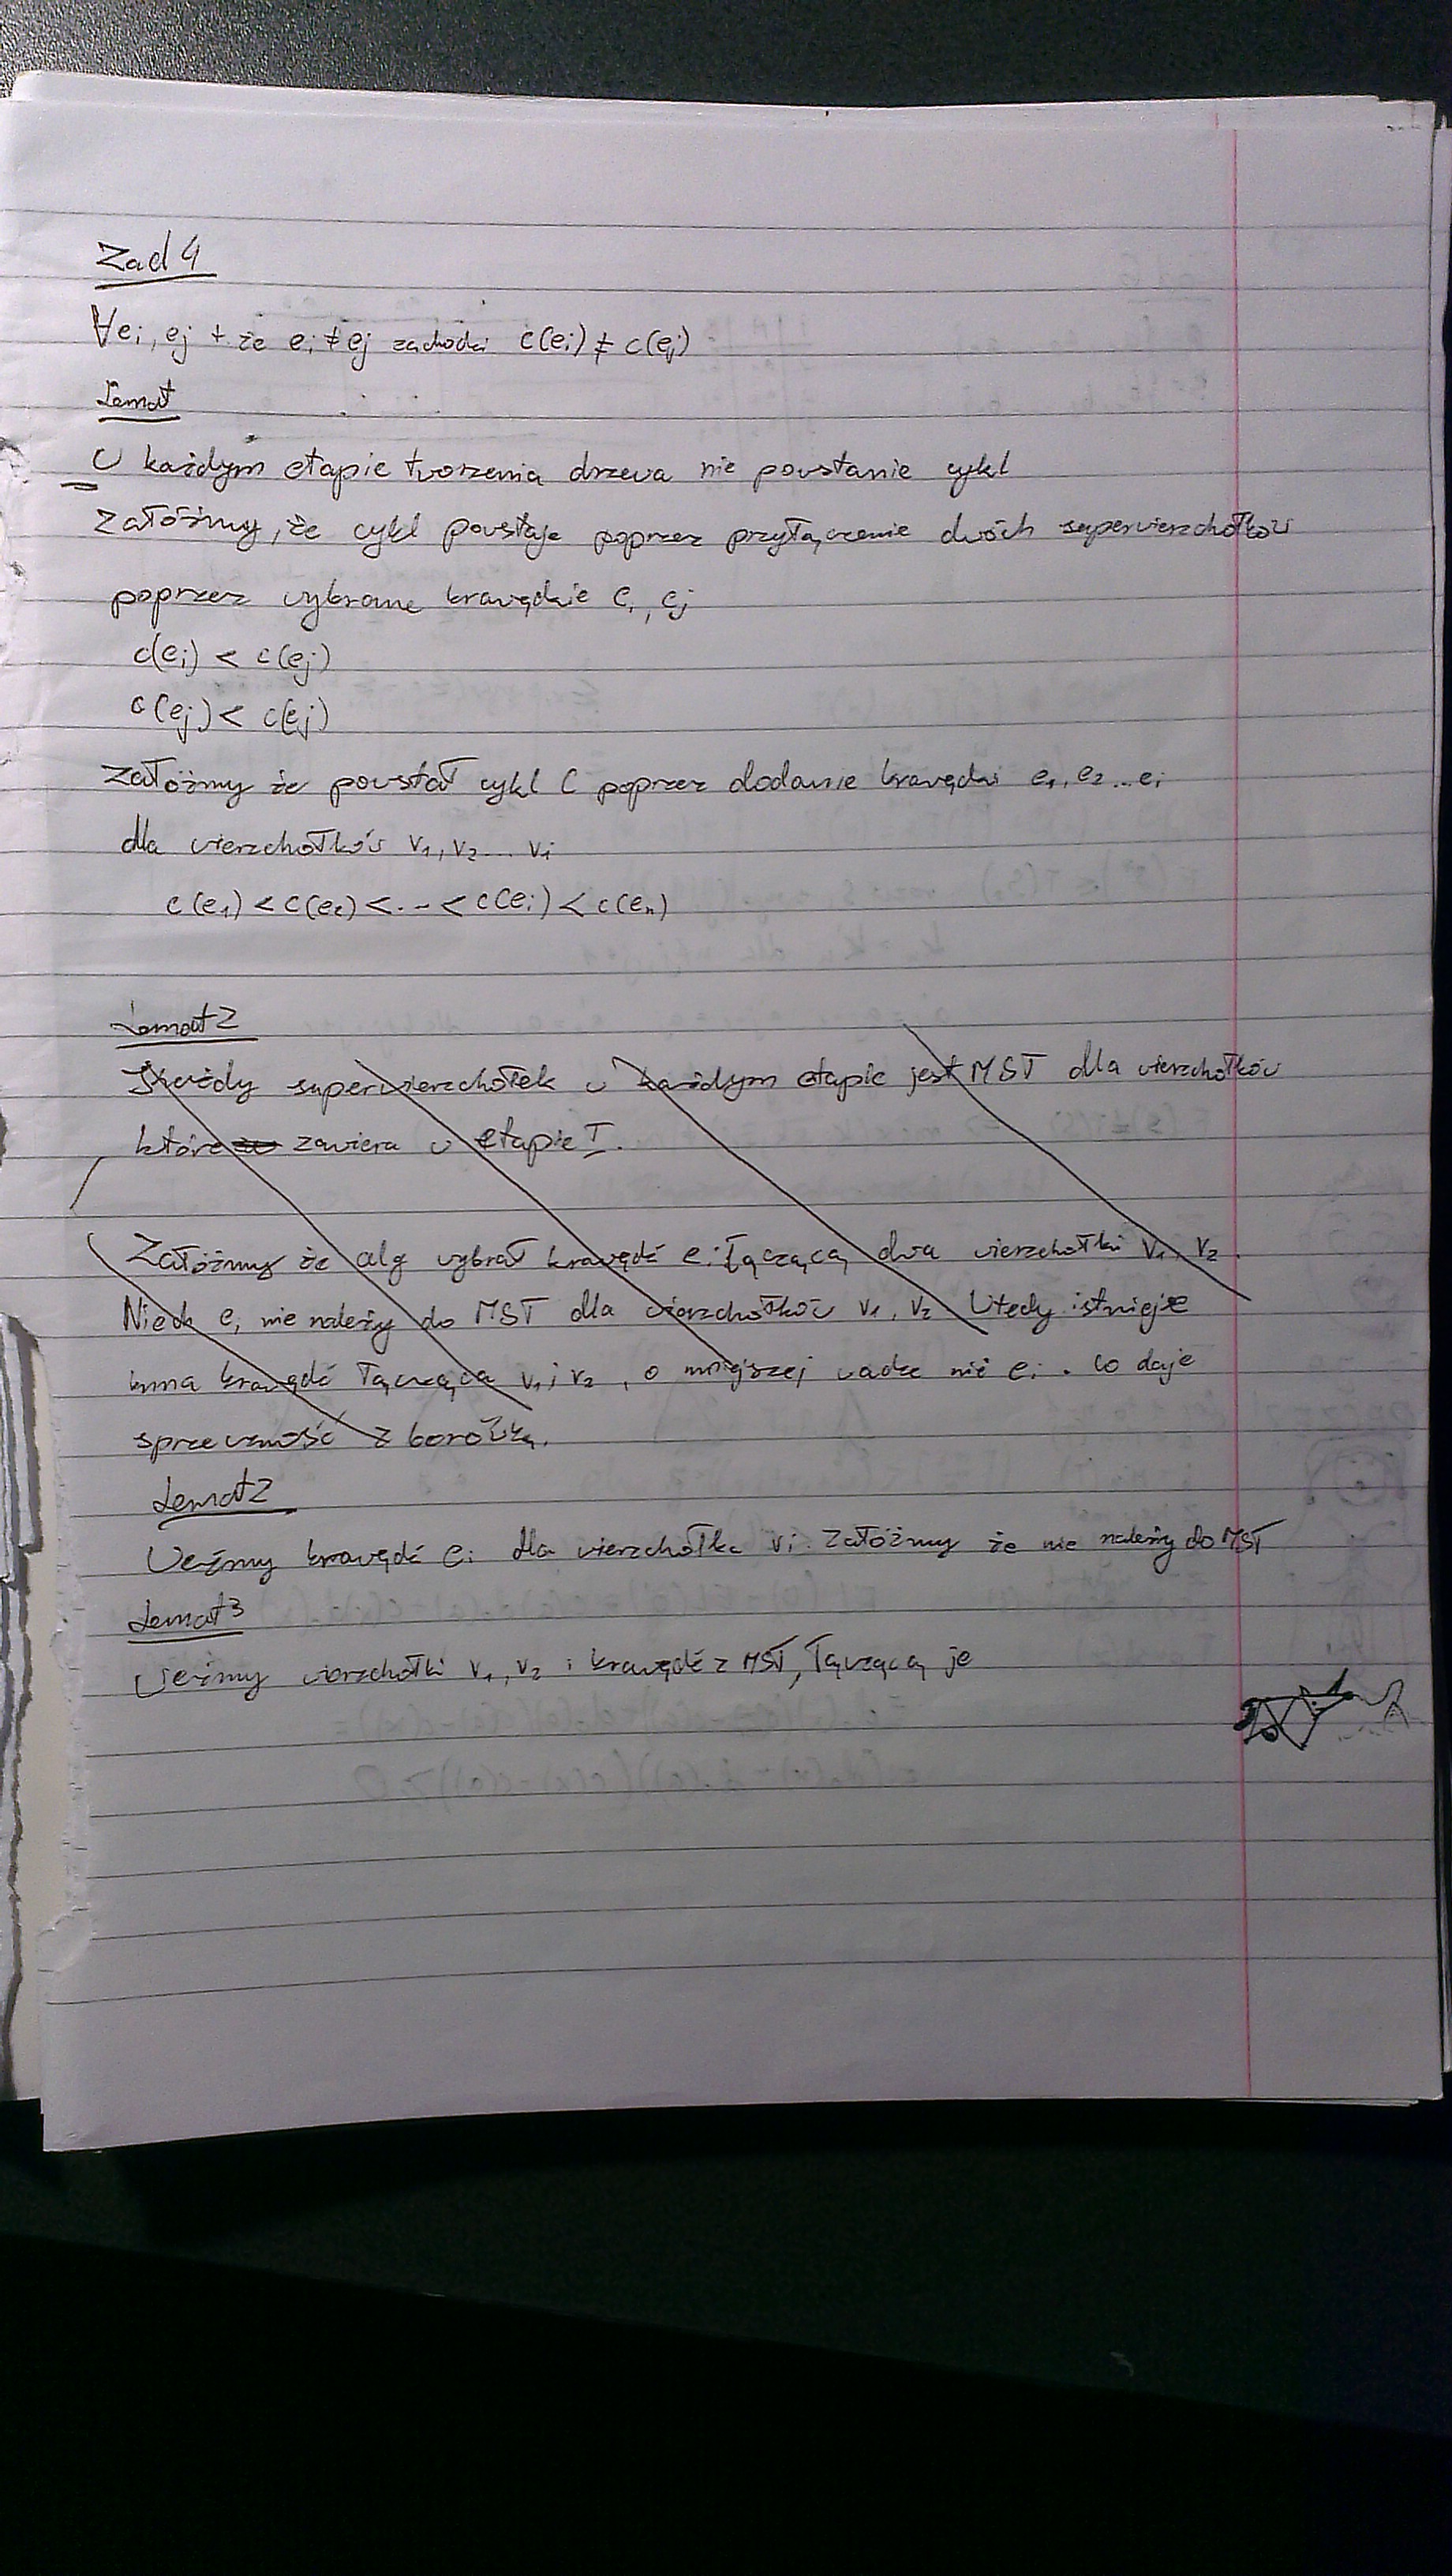 Zad 4
∀ei, ej t. że ei ≠ ej zachodzi c(ei) ≠ c(ej)
Lemat
W każdym etapie tworzenia drzewa nie powstanie cykl
Załóżmy, że cykl powstaje poprzez przyłączenie dwóch superwierzchołków
poprzez wybrane krawędzie ei, ej
c(ei) < c(ej)
c(ej) < c(ej)
Załóżmy że powstał cykl C poprzez dodanie krawędzi e1, e2 ... ei
dla wierzchołków v1, v2 ... vi
c(e1) < c(e2) < ... < c(ei) < c(en)
Lemat 2
Każdy superwierzchołek w każdym etapie jest MST dla wierzchołków
które zawiera w etapie I.
Załóżmy że alg wybrał krawędź ei łączącą dwa wierzchołki v1, v2.
Niech ei nie należy do MST dla wierzchołków v1, v2 Wtedy istnieje
inna krawędź łącząca v1 i v2, o mniejszej wadze niż ei. Co daje
sprzeczność z borůvką.
Lemat 2
Weźmy krawędź ei dla wierzchołka vi. Załóżmy że nie należy do MST
Lemat 3
Weźmy wierzchołki v1, v2 i krawędź z MST, łączącą je